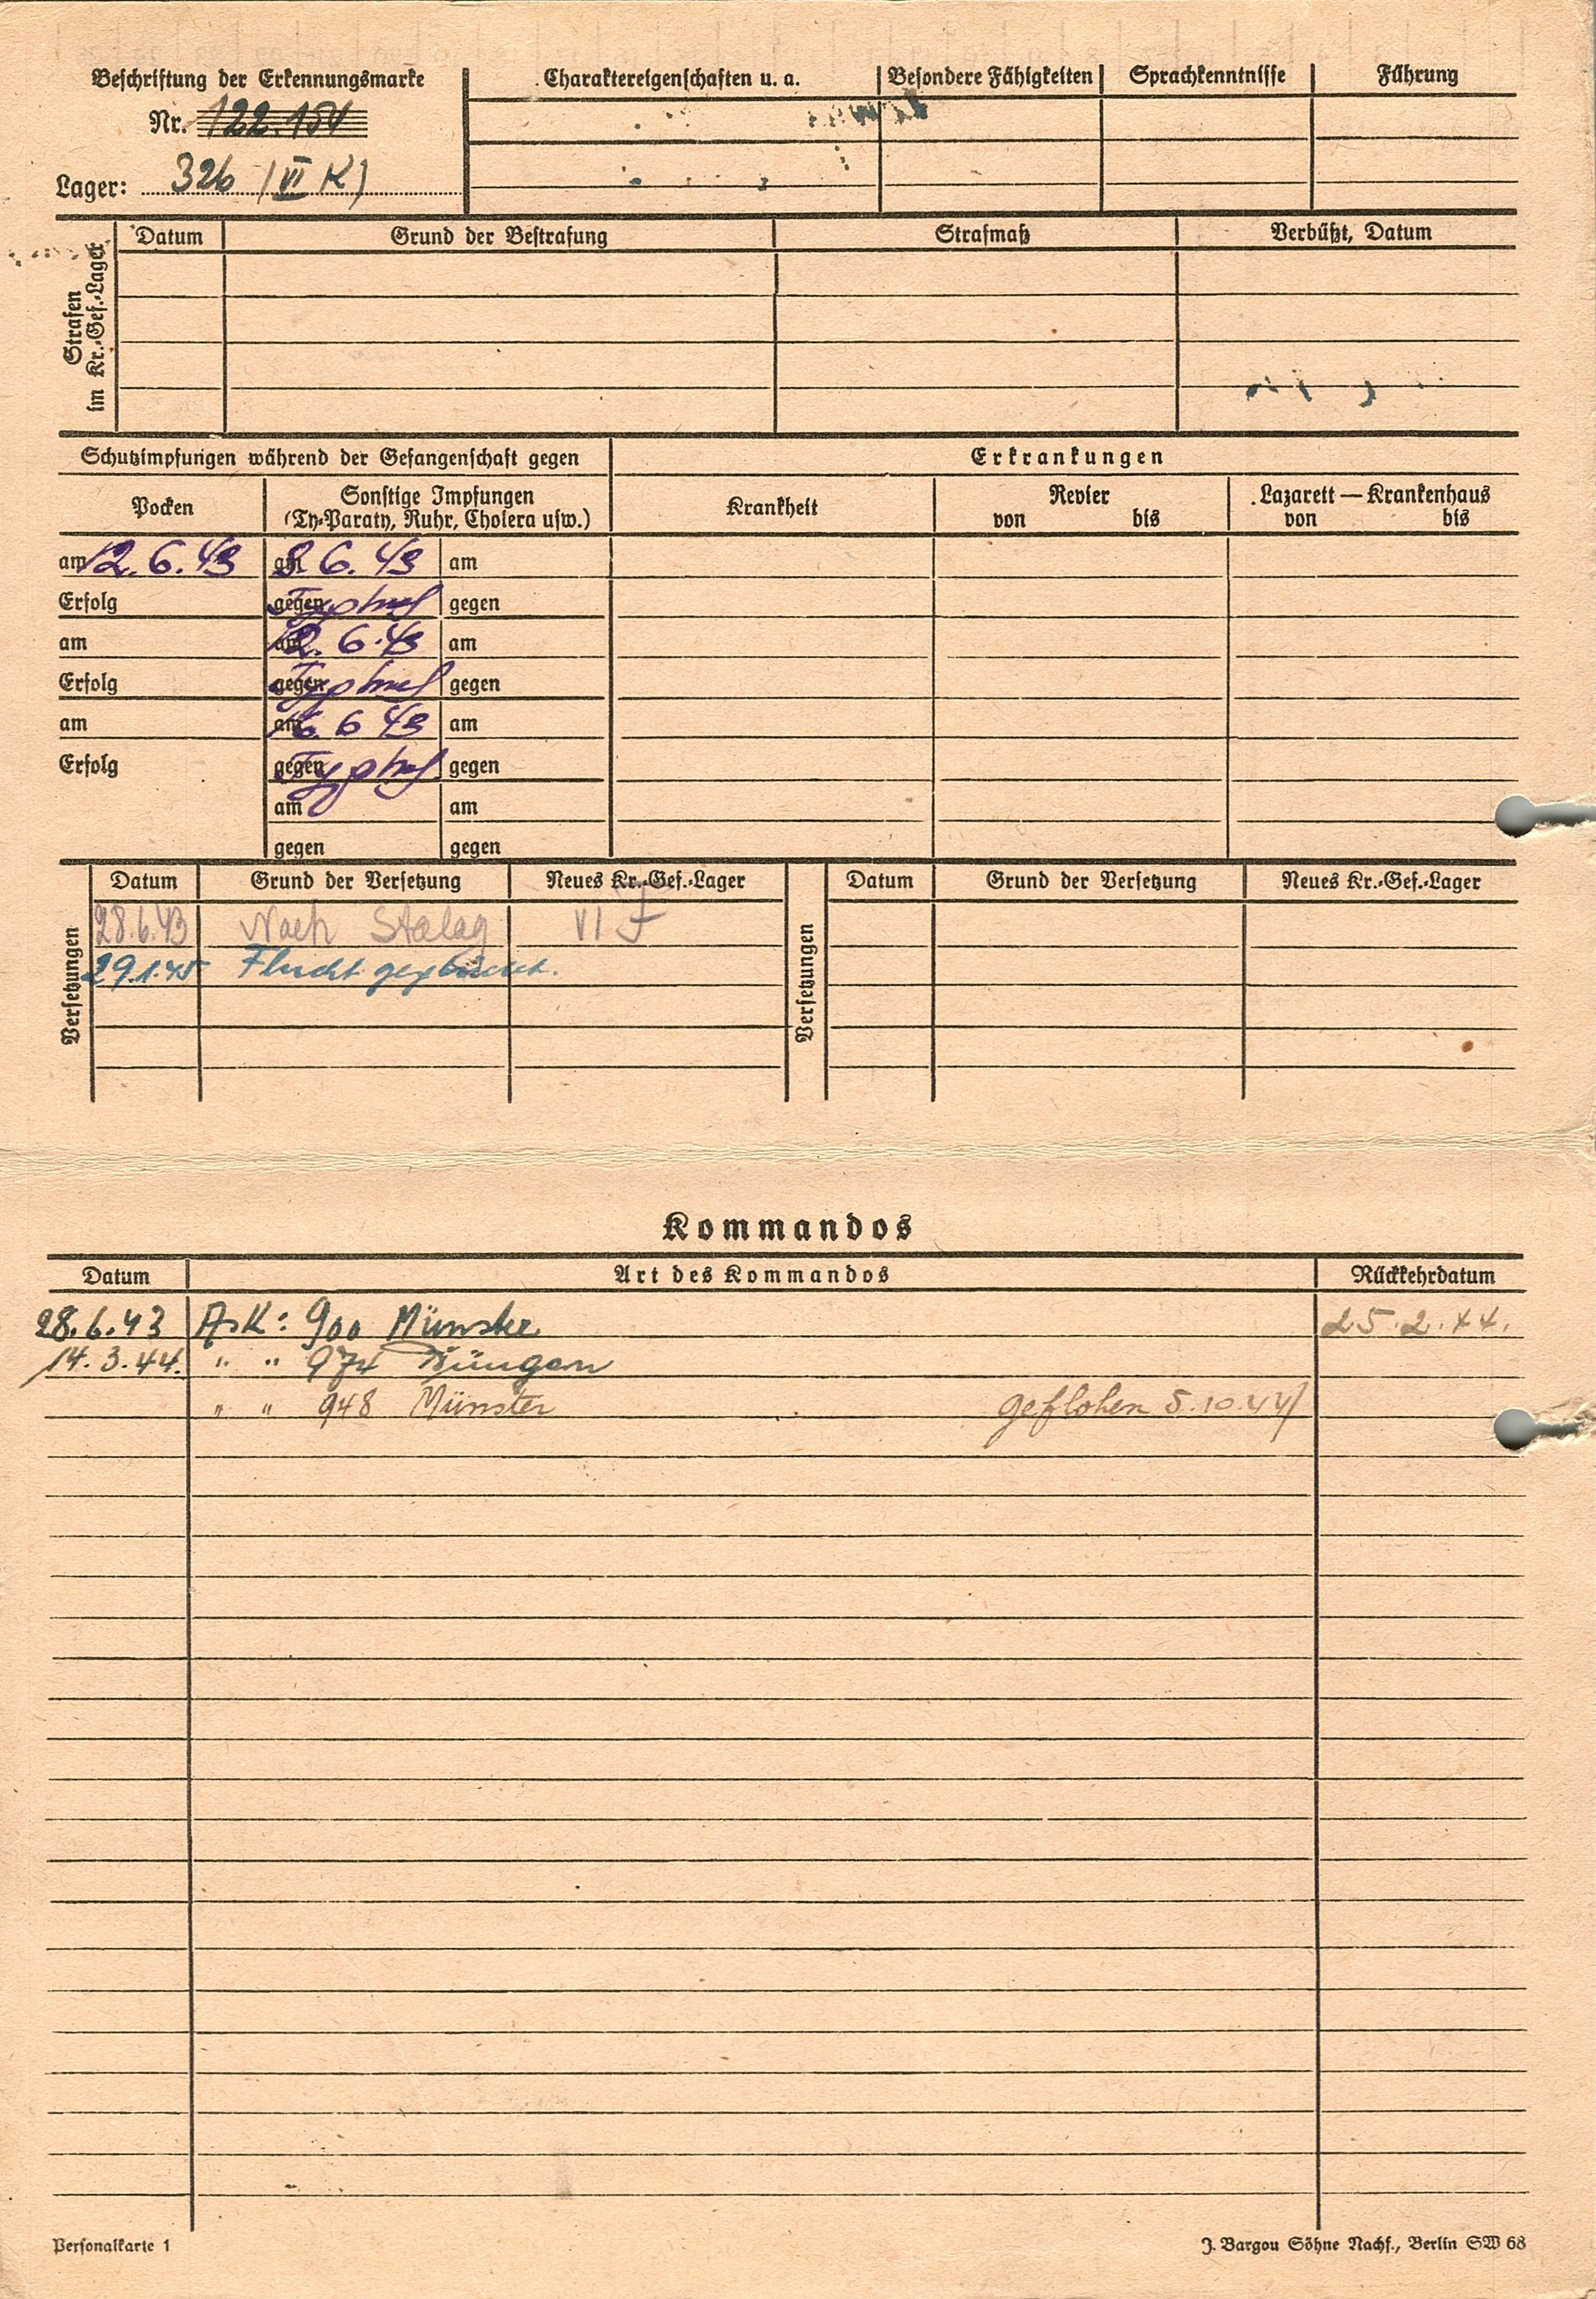 Beschriftung der Erkennungsmarke
Nr. 122.154
Lager: 326 (VI K)
Charaktereigenschaften u. a. Besondere Fähigkeiten Sprachkenntnisse Führung
Strafen im Kr.-Gef.-Lager
Datum Grund der Bestrafung Strafmaß Verbüßt, Datum
Schutzimpfungen während der Gefangenschaft gegen Erkrankungen
Pocken Sonstige Impfungen (Ty-Paraty, Ruhr, Cholera usw.) Krankheit Revier von bis Lazarett — Krankenhaus von bis
am 12.6.43 am 8.6.43 am
Erfolg gegen Typhus gegen
am am 12.6.43 am
Erfolg gegen Typhus gegen
am am 16 6 43 am
Erfolg gegen Typhus gegen
am am
gegen gegen
Versetzungen
Datum Grund der Versetzung Neues Kr.-Gef.-Lager
28.6.43 Nach Stalag VI F
29.1.45 Flucht
Versetzungen
Datum Grund der Versetzung Neues Kr.-Gef.-Lager
Kommandos
Datum Art des Kommandos Rückkehrdatum
28.6.43 Ask: 900 Münster 25.2.44.
14.3.44. " " 974
" " 948 Münster geflohen 5.10.44
Personalkarte 1
J. Bargou Söhne Nachf., Berlin SW 68